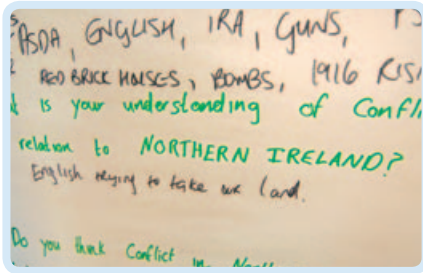 ASDA, ENGLISH, IRA, GUNS,
RED BRICK HOUSES, BOMBS, 1916 RIS
is your understanding of Confli
relation to NORTHERN IRELAND?
English trying to take we land.
Do you think Conflict in North